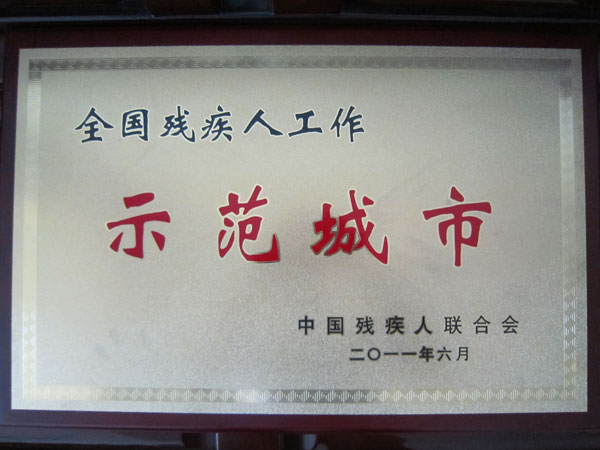 全国残疾人工作
示范城市
中国残疾人联合会
二〇一一年六月